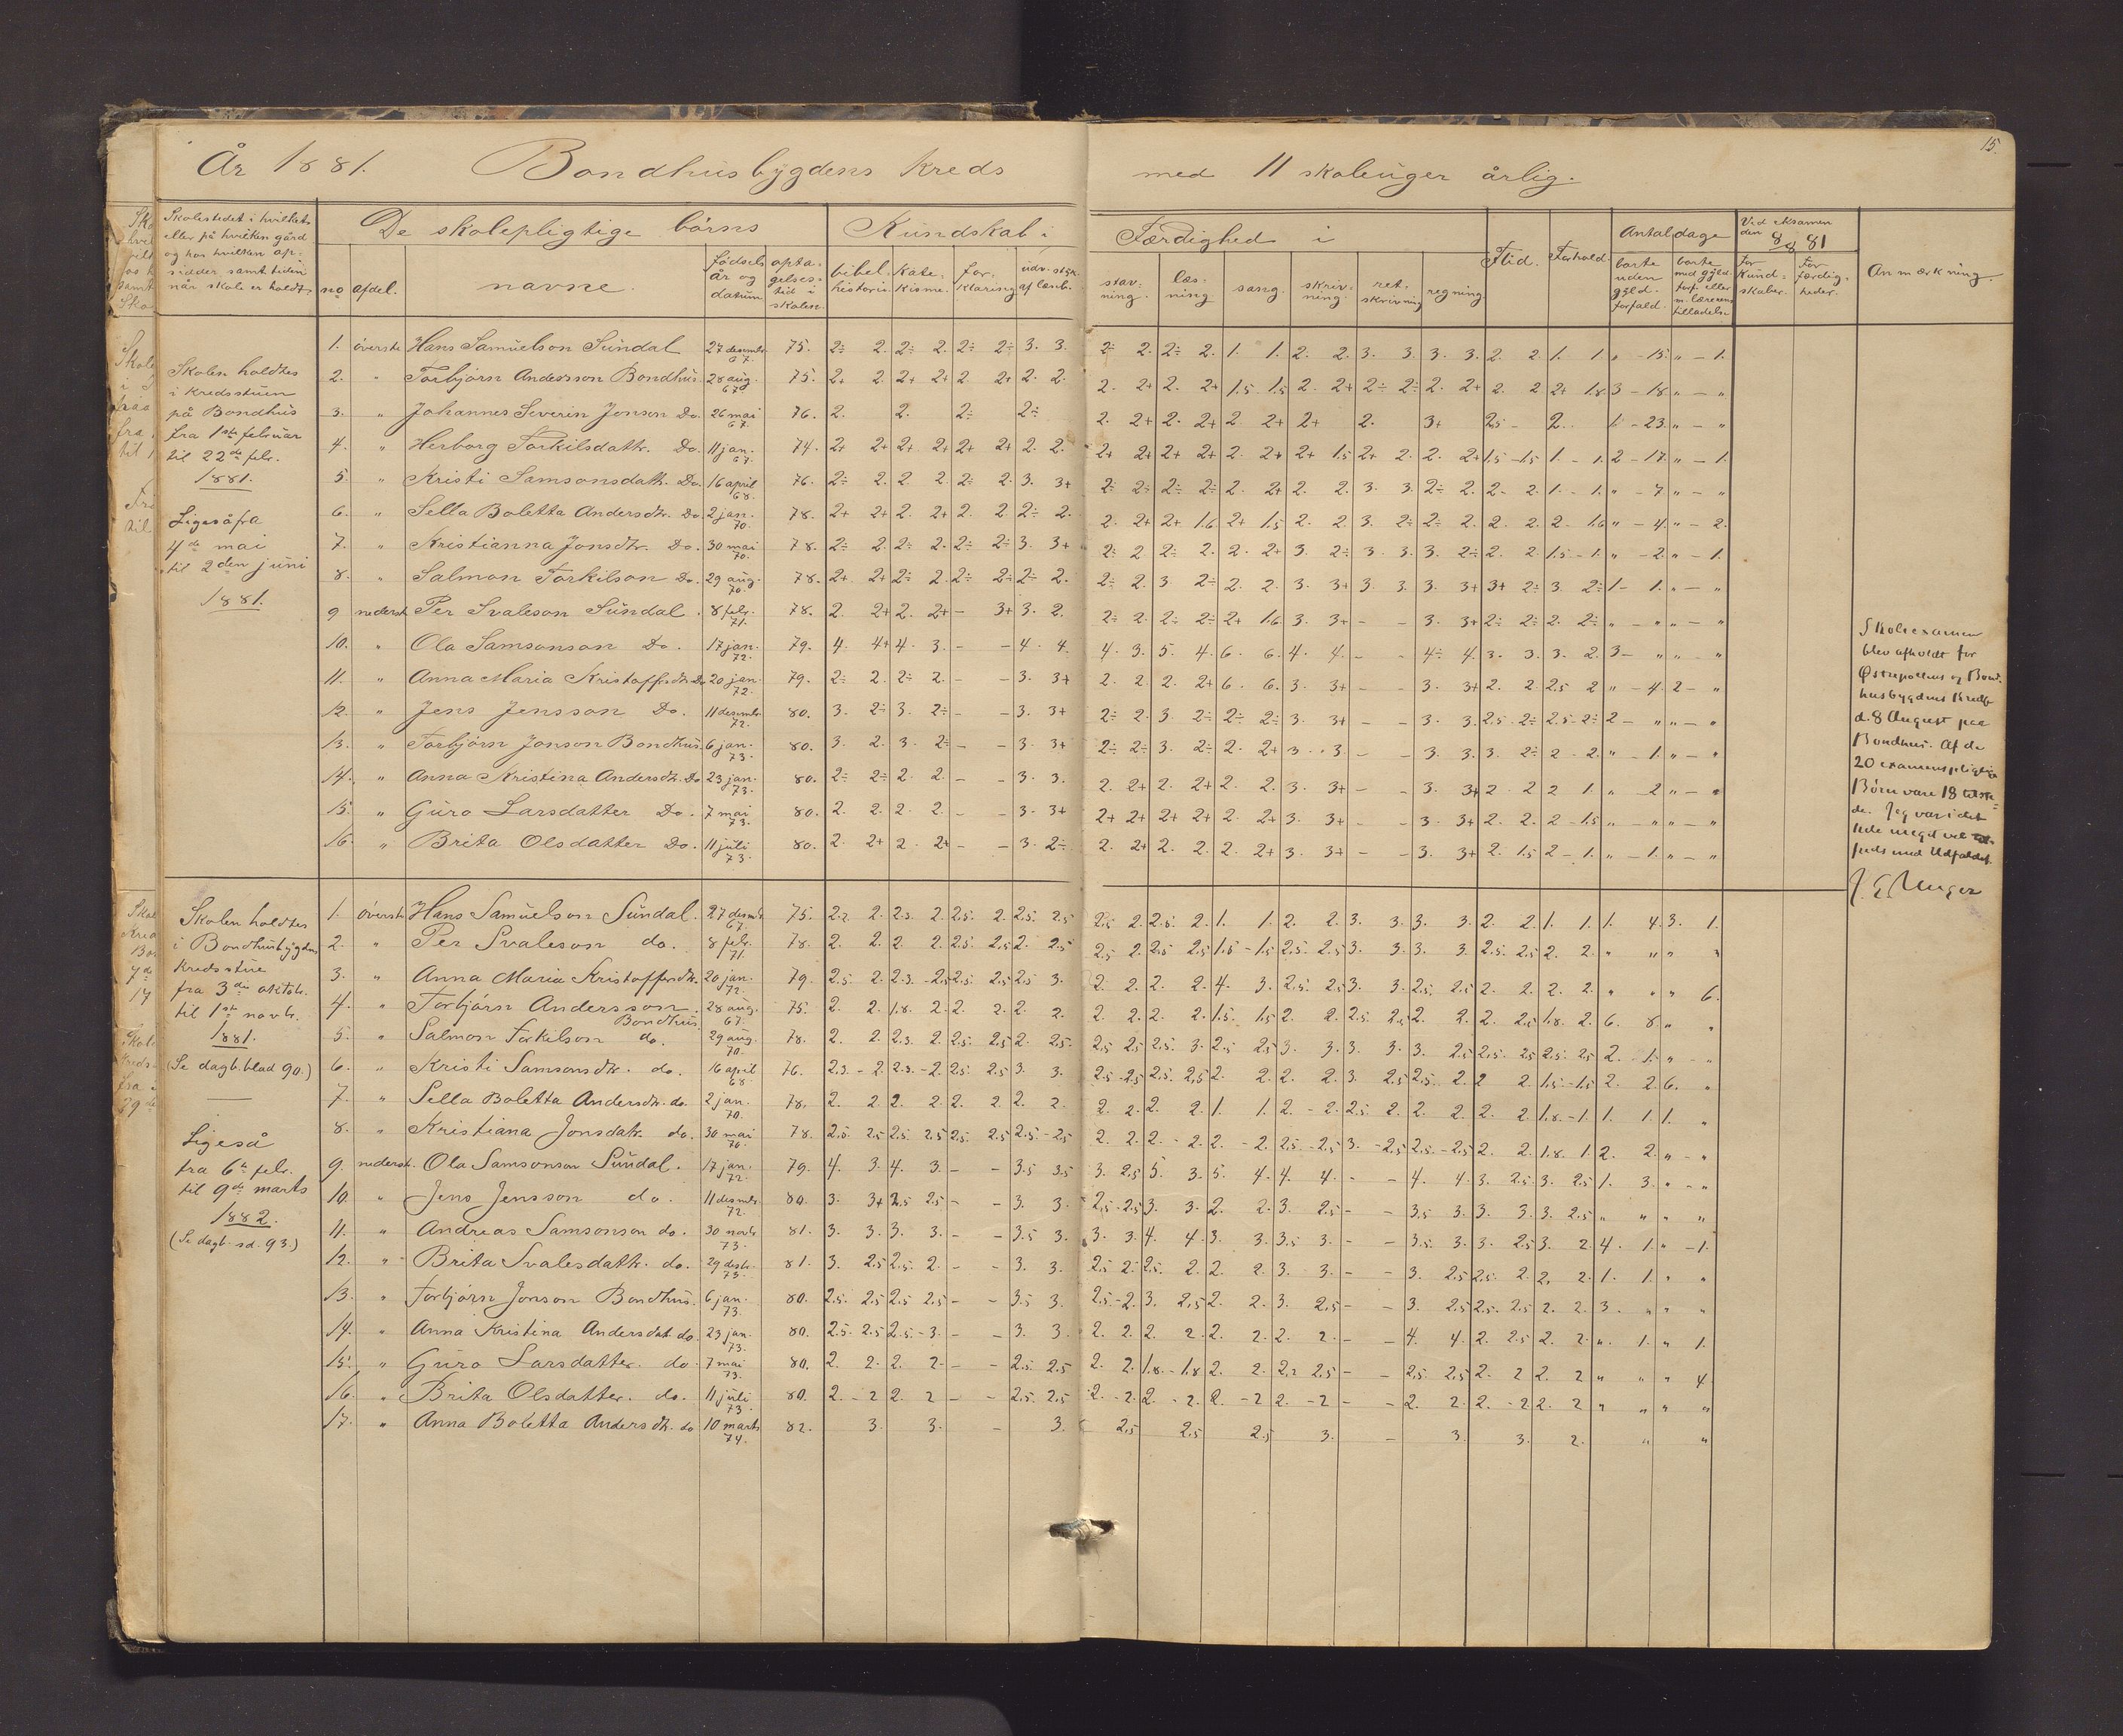 15.
År 1881. Bondhusbygdens kreds med 11 skoleuger årlig.
Skolestedet i hvilkets
eller på hvilken gård
og hos hvilken op-
sidder, samt tiden
når skole er holdt.
De skolepligtige börns
no afdel. navne.
födsels
år og
datum.
opta-
gelses-
tid i
skolen.
Kundskab i
bibel-
historie.
kate-
kisme.
for-
klaring
udv. styk.
af læseb.
Færdighed i
stav-
ning.
læs-
ning
sang.
skriv-
ning.
ret-
skrivning
regning
Flid.
Forhold.
Antal dage
borte
uden
gyld.
forfald.
borte
med gyld.
forf. eller
m. lærerens
tilladelse
Ved eksamen
den 8/8 81
for
kund-
skaber.
for
færdig-
heder.
Anmærkning.
Skolen holdtes
i kredsstuen
på Bondhus
fra 1ste februar
til 22de febr.
1881.
Ligeså fra
4de mai
til 2den juni
1881.
1. överste Hans Samuelson Sundal 27 desembr. 67. 75. 2÷ 2. 2÷ 2. 2÷ 2÷ 3. 3. 2÷ 2. 2÷ 2. 1. 1. 2. 2. 3. 3. 3. 3. 2. 2. 1. 1. " - 15. " - 1.
2. " Torbjörn Andersson Bondhus. 28 aug. 67. 75. 2+ 2. 2+ 2+ 2. 2+ 2. 2. 2. 2+ 2. 2+ 1.5 1.5 2. 2+ 2÷ 2÷ 2. 2+ 2. 2 2+ 1.8 3 - 18. " - "
3. " Johannes Severin Jonson Do. 26 mai 67. 76. 2. 2. 2÷ 2÷ 2. 2+ 2. 2+ 2 2+ 2+ 2. 3+ 2.5 - 2. 1 - 23. " - "
4. " Herborg Torkilsdatr. Do. 11 jan. 67. 74. 2+ 2+ 2+ 2+ 2+ 2+ 2. 2. 2+ 2+ 2+ 2+ 2. 2+ 2+ 1.5 2+ 2. 2. 2+ 1.5 - 1.5 1. - 1. 2 - 17. " - 1.
5. " Kristi Samsonsdatr. Do. 16 april 68. 76. 2÷ 2. 2 2. 2÷ 2. 3. 3+ 2÷ 2÷ 2÷ 2÷ 2. 2+ 2. 2. 3. 3. 2÷ 2. 2. 2. 1. - 1. " - 7. " - "
6. " Sella Boletta Andersdtr. Do 2 jan. 70. 78. 2+ 2+ 2. 2+ 2. 2 2÷ 2. 2. 2+ 2+ 1.6 2+ 1.5 2. 2. 3. 2÷ 2÷ 2. 2. 2. 2 - 1.6 " - 4. " - 2.
7. " Kristianna Jonsdtr. Do. 30 mai 70. 78. 2÷ 2. 2÷ 2. 2÷ 2÷ 3. 3+ 2÷ 2 2÷ 2. 2. 2+ 3. 2÷ 3. 3. 3. 2÷ 2. 2 1.5 - 1. " - 2. " - 1.
8. " Salmon Torkilson Do. 29 aug. 70. 78. 2+ 2+ 2÷ 2. 2÷ 2÷ 2÷ 2. 2÷ 2. 3 2÷ 2. 2. 3. 3+ 3. 3. 3. 3+ 3+ 2÷ 3. 2÷ 1 - 1. " - "
9 nederst. Per Svaleson Sundal. 8 febr. 71. 78. 2. 2+ 2. 2+ - 3+ 3. 2. 2÷ 2. 2÷ 2÷ 2+ 1.6 3. 3+ - - 3. 3+ 2÷ 2÷ 2. 2÷ " - " " - "
10. " Ola Samsonson Do. 17 jan. 72. 79. 4. 4+ 4. 3. - - 4. 4. 4. 3. 5. 4. 6. 6. 4. 4. - - 4÷ 4. 3. 3. 3. 2. 3 - " " - "
11. " Anna Maria Kristoffersdtr. Do 20 jan. 72. 79. 2÷ 2. 2÷ 2. - - 3. 3+ 2. 2. 2. 2+ 6. 6. 3. 3+ - - 3. 3+ 2. 2. 2.5 2 " - 4. 2 - "
12. " Jens Jensson Do. 11 desembr. 72. 80. 3. 2÷ 3. 2÷ - - 3. 3+ 2÷ 2. 3. 2÷ 2÷ 2÷ 3. 3+ - - 3. 3. 2.5 2÷ 2.5 2÷ 2 - " " - "
13. " Torbjörn Jonson Bondhus. 6 jan. 73. 80. 3. 2. 3. 2÷ - - 3. 3+ 2÷ 2÷ 3. 2÷ 2. 2+ 3. 3. - - 3. 3. 3. 2÷ 2 - 2. " - 1. " - "
14. " Anna Kristina Andersdtr. Do 23 jan. 73. 80. 2÷ 2÷ 2. 2. - - 3. 3. 2. 2+ 2. 2+ 2. 2. 3. 3+ - - 3. 3+ 2. 2 2 1. " - 2 " - "
15. " Guro Larsdatter Do. 7 mai 73. 80. 2. 2. 2. 2. - - 3. 3+ 2+ 2+ 2+ 2+ 2. 2+ 3. 3+ - - 3. 3+ 2. 2. 2 - 1.5 " - " " - "
16. " Brita Olsdatter Do. 11 juli 73. 80. 2. 2+ 2. 2+ - - 3. 2÷ 2. 2+ 2. 2. 2. 2+ 3. 3+ - - 3. 3+ 2. 1.5 2 - 1. " - 1. " - "
Skoleexamen
blev afholdt for
Østrepollens og Bond-
husbygdens Kredse
d. 8 August paa
Bondhus. Af de
20 examenspligtige
Børn vare 18 tilste-
de. Jeg var i det
hele meget vel til-
freds med Udfaldet.
J. E. Unger
Skolen holdtes
i Bondhusbygdens
kredsstue
fra 3die oktob.
til 1ste novbr.
1881.
(Se dagb. blad 90.)
Ligeså
fra 6te febr.
til 9de marts
1882.
(Se dagb. sd. 93.)
1. överste Hans Samuelson Sundal. 27 desmbr. 67. 75. 2.2. 2. 2.3. 2. 2.5. 2. 2.5. 2.5 2.5 2. 2.5. 2. 1. 1. 2. 2. 3. 3. 3. 3. 2. 2. 1. 1. 1. 4. 3. 1.
2. " Per Svaleson do. 8 febr. 71. 78. 2. 2. 2. 2. 2.5. 2.5 2. 2.5 2.5 2. 2.5 2.5 1.5 - 1.5 2.5. 2.5 3. 3. 3. 3. 2.5. 2.5 2. 2. " " "
3. " Anna Maria Kristoffersdtr. 20 jan. 72. 79. 2.5. 2. 2.3. - 2.5 2.5. 2.5 2.5 3. 2. 2. 2. 2. 4. 3. 2.5. 2.5 3. 3. 2.5. 2.5 2. 2. 2. 2. " " " 6.
4. " Torbjörn Andersson Bondhus. 28 aug. 67. 75. 2. 2. 1.8. 2. 2. 2. 2. 2. 2. 2. 2. 2. 1.5. 1.5 2. 2. 2.5. 2.5 2. 2. 2. 2.5 1.8. 2. 6. 8 " "
5. " Salmon Torkilson do. 29 aug. 70. 78. 2. 2. 2.3. 2. 2.5. 2.5 2. 2.5. 2.5 2.5 2.5. 3. 2.5 2.5 3. 3. 3. 3. 3. 2.5 2.5. 2.5 2.5. 2.5 2. - 1. " - "
6. " Kristi Samsonsdtr. do. 16 april 68. 76. 2.3. - 2. 2.3. - 2. 2.5. 2.5 3. 3. 2.5 - 2.5 2.5. 2.5 2. 2. 2. 2. 3. 2.5 2.5. 2. 2 2 1.5 - 1.5 2. 2. 6. "
7. " Sella Boletta Andersdtr. do. 2 jan. 70. 78. 2. 2. 2. 2. 2. 2. 2. 2. 2. 2. 2. 2. 1. 1. 2. - 2. 2.5. 2. 2. 2. 2. 2 1.8 - 1. 1. 1. 1. "
8. " Kristiana Jonsdatr. do. 30 mai 70. 78. 2.5. 2.5 2.5. 2.5 2.5. 2.5 2.5. - 2.5 2. 2. 2. - 2. 2. - 2. 2.5. - 2.5 3. - 2.5 2.5. - 2.5 2. 2. 1.8. 1. 2. 2. " - "
9. nederst. Ola Samsonson Sundal. 17 jan. 72. 79. 4. 3. 4. 3. - - 3.5 3.5 3. 2.5 5. 3. 5. 4. 4. 4. - - 4. 4. 3. 2.5 3. 2.5 1. 3. " - "
10. " Jens Jensson do. 11 desmbr. 72. 80. 3. 3+ 2.5 2.5 - - 3. 3. 2.5 - 2.5 3. 3. 2. 2. 3. 2.5 - - 3.5 3. 3. 3. 3. 2.5 " " " "
11. " Andreas Samsonson do. 30 novbr. 73. 81. 3. 3. 3. 3. - - 3.5 3. 3. 3. 4. 4. 3. 3. 3.5 3. - - 3.5. 3. 3. 2.5 3. 2. 4. 1. " - 1.
12. " Brita Svalesdatr. do. 29 desbr. 73. 81. 3. 2.5 2.5. 2. - - 3. 3. 2.5 2. 2.5. 2. 2. 2. 3. 3. - - 3. 2.5 2.5. 2. 2. 2. 1. 1. " "
13. " Torbjörn Jonson Bondhus. 6 jan. 73. 80. 2.5. 2.5 2.5 2.5 - - 3.5 3. 2.5 - 2. 3. 2.5 2. 2. 3. 2.5 - - 3. 2.5 2.5. 2.5 2. 2. 3. " " "
14. " Anna Kristina Andersdat do. 23 jan. 73. 80. 2.5. 2.5 2.5. - 3. - - 3. 3. 2. 2. 2. 2. 2. 2. 2. 2. - - 4. 4. 2. 2.5 2. 2. " 1. " 1.
15. " Guro Larsdatter. do. 7 mai 73. 80. 2. 2. 2. 2. - - 2.5. 2.5 2. 2. 1.8. - 1.8 2. 2. 2.2 2.5 - - 2.5. 2.5 2. 2 2. 2 " " " 4.
16. " Brita Olsdatter. do. 11 juli 73. 80. 2. - 2 2. 2 - - 2.5. 2.5 2. - 2. 2. - 2. 2. - 2 2. - 2 - - 2. 2. 2. - 2 2. 2 " " " "
17. " Anna Boletta Andersdtr. do 10 marts 74. 82. 3. 3. - 3. 2.5 2.5 2.5 3. - 3. 3. 2. " "